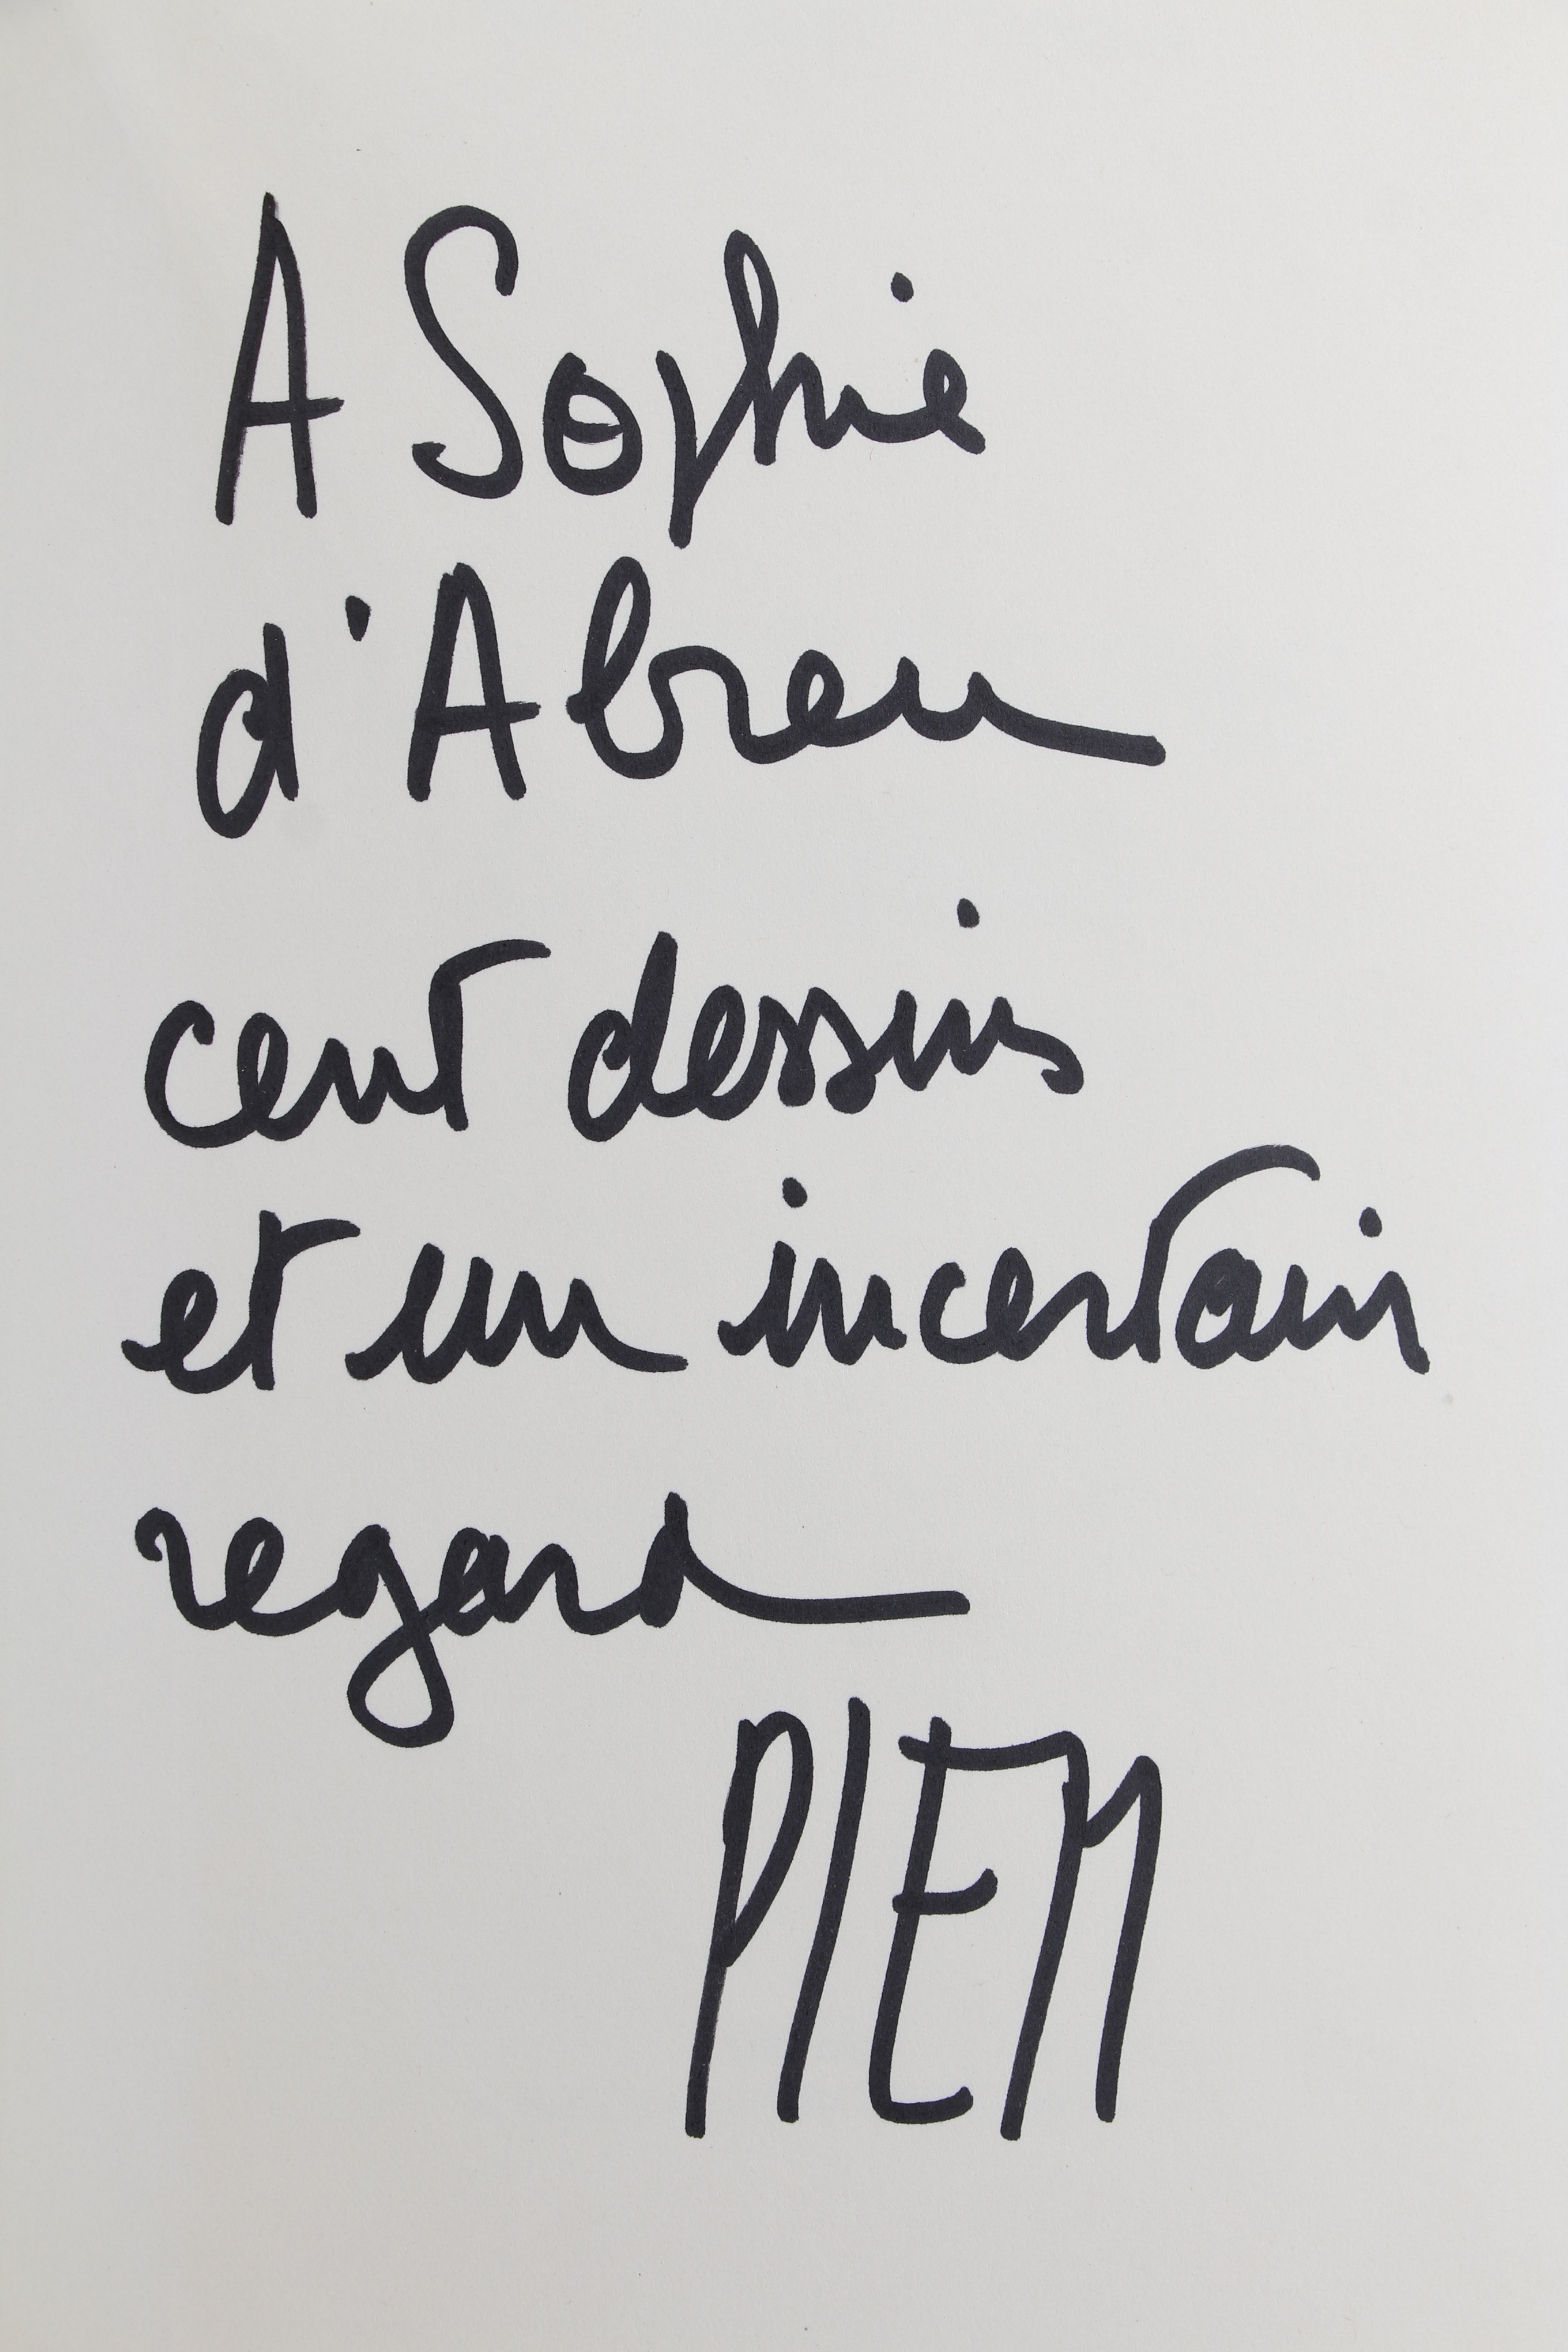 A Sophie
d'Abreu
cent dessins
et un incertain
regard
PIEM